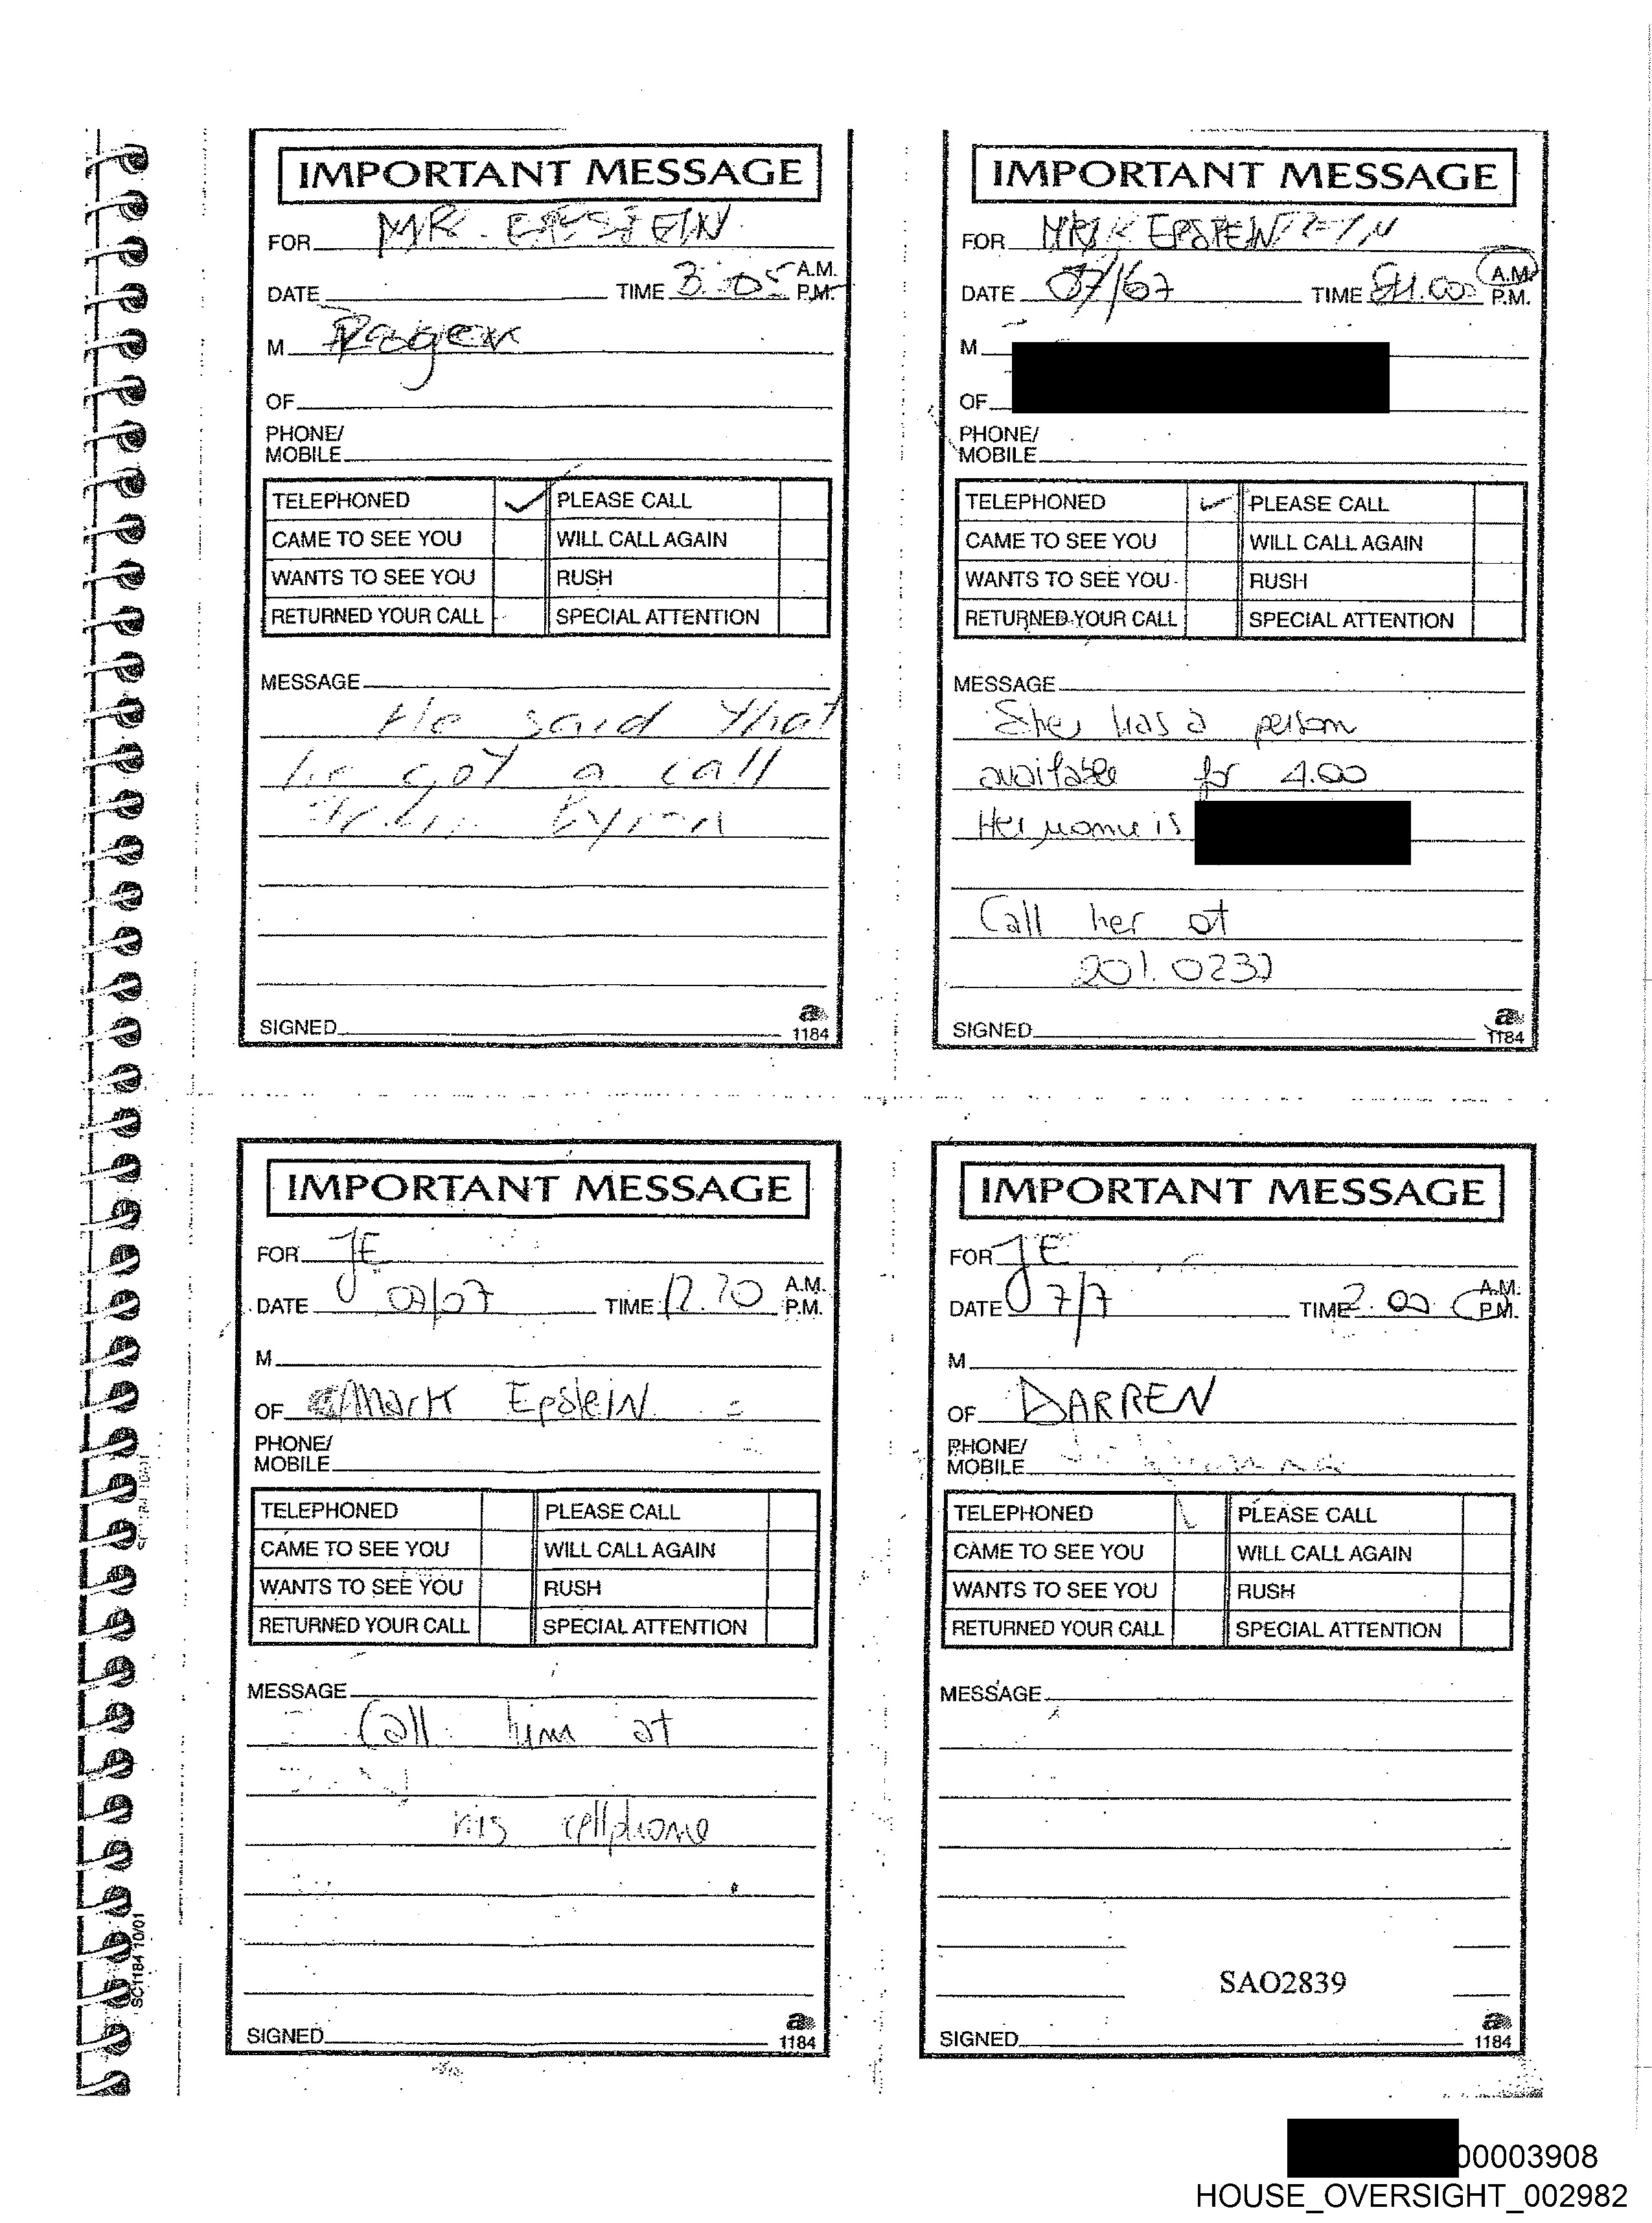 IMPORTANT MESSAGE
FOR MR. EPSTEIN
DATE TIME 3:05 A.M. P.M.
M
OF
PHONE/
MOBILE
TELEPHONED ✓ PLEASE CALL
CAME TO SEE YOU WILL CALL AGAIN
WANTS TO SEE YOU RUSH
RETURNED YOUR CALL SPECIAL ATTENTION
MESSAGE
He said that
he got a call
Byron
SIGNED
a
1184
IMPORTANT MESSAGE
FOR EPSTEIN
DATE TIME A.M. P.M.
M
OF
PHONE/
MOBILE
TELEPHONED ✓ PLEASE CALL
CAME TO SEE YOU WILL CALL AGAIN
WANTS TO SEE YOU RUSH
RETURNED YOUR CALL SPECIAL ATTENTION
MESSAGE
She has a person
available for 4.00
Her name is
Call her at
SIGNED
a
1184
IMPORTANT MESSAGE
FOR JE
DATE 07/07 TIME A.M. P.M.
M
OF Mark Epstein
PHONE/
MOBILE
TELEPHONED PLEASE CALL
CAME TO SEE YOU WILL CALL AGAIN
WANTS TO SEE YOU RUSH
RETURNED YOUR CALL SPECIAL ATTENTION
MESSAGE
Call him at
his cellphone
SIGNED
a
1184
SC1184 10/01
IMPORTANT MESSAGE
FOR JE
DATE 7/7 TIME 2.00 A.M. P.M.
M
OF DARREN
PHONE/
MOBILE
TELEPHONED ✓ PLEASE CALL
CAME TO SEE YOU WILL CALL AGAIN
WANTS TO SEE YOU RUSH
RETURNED YOUR CALL SPECIAL ATTENTION
MESSAGE
SAO2839
SIGNED
a
1184
00003908
HOUSE_OVERSIGHT_002982